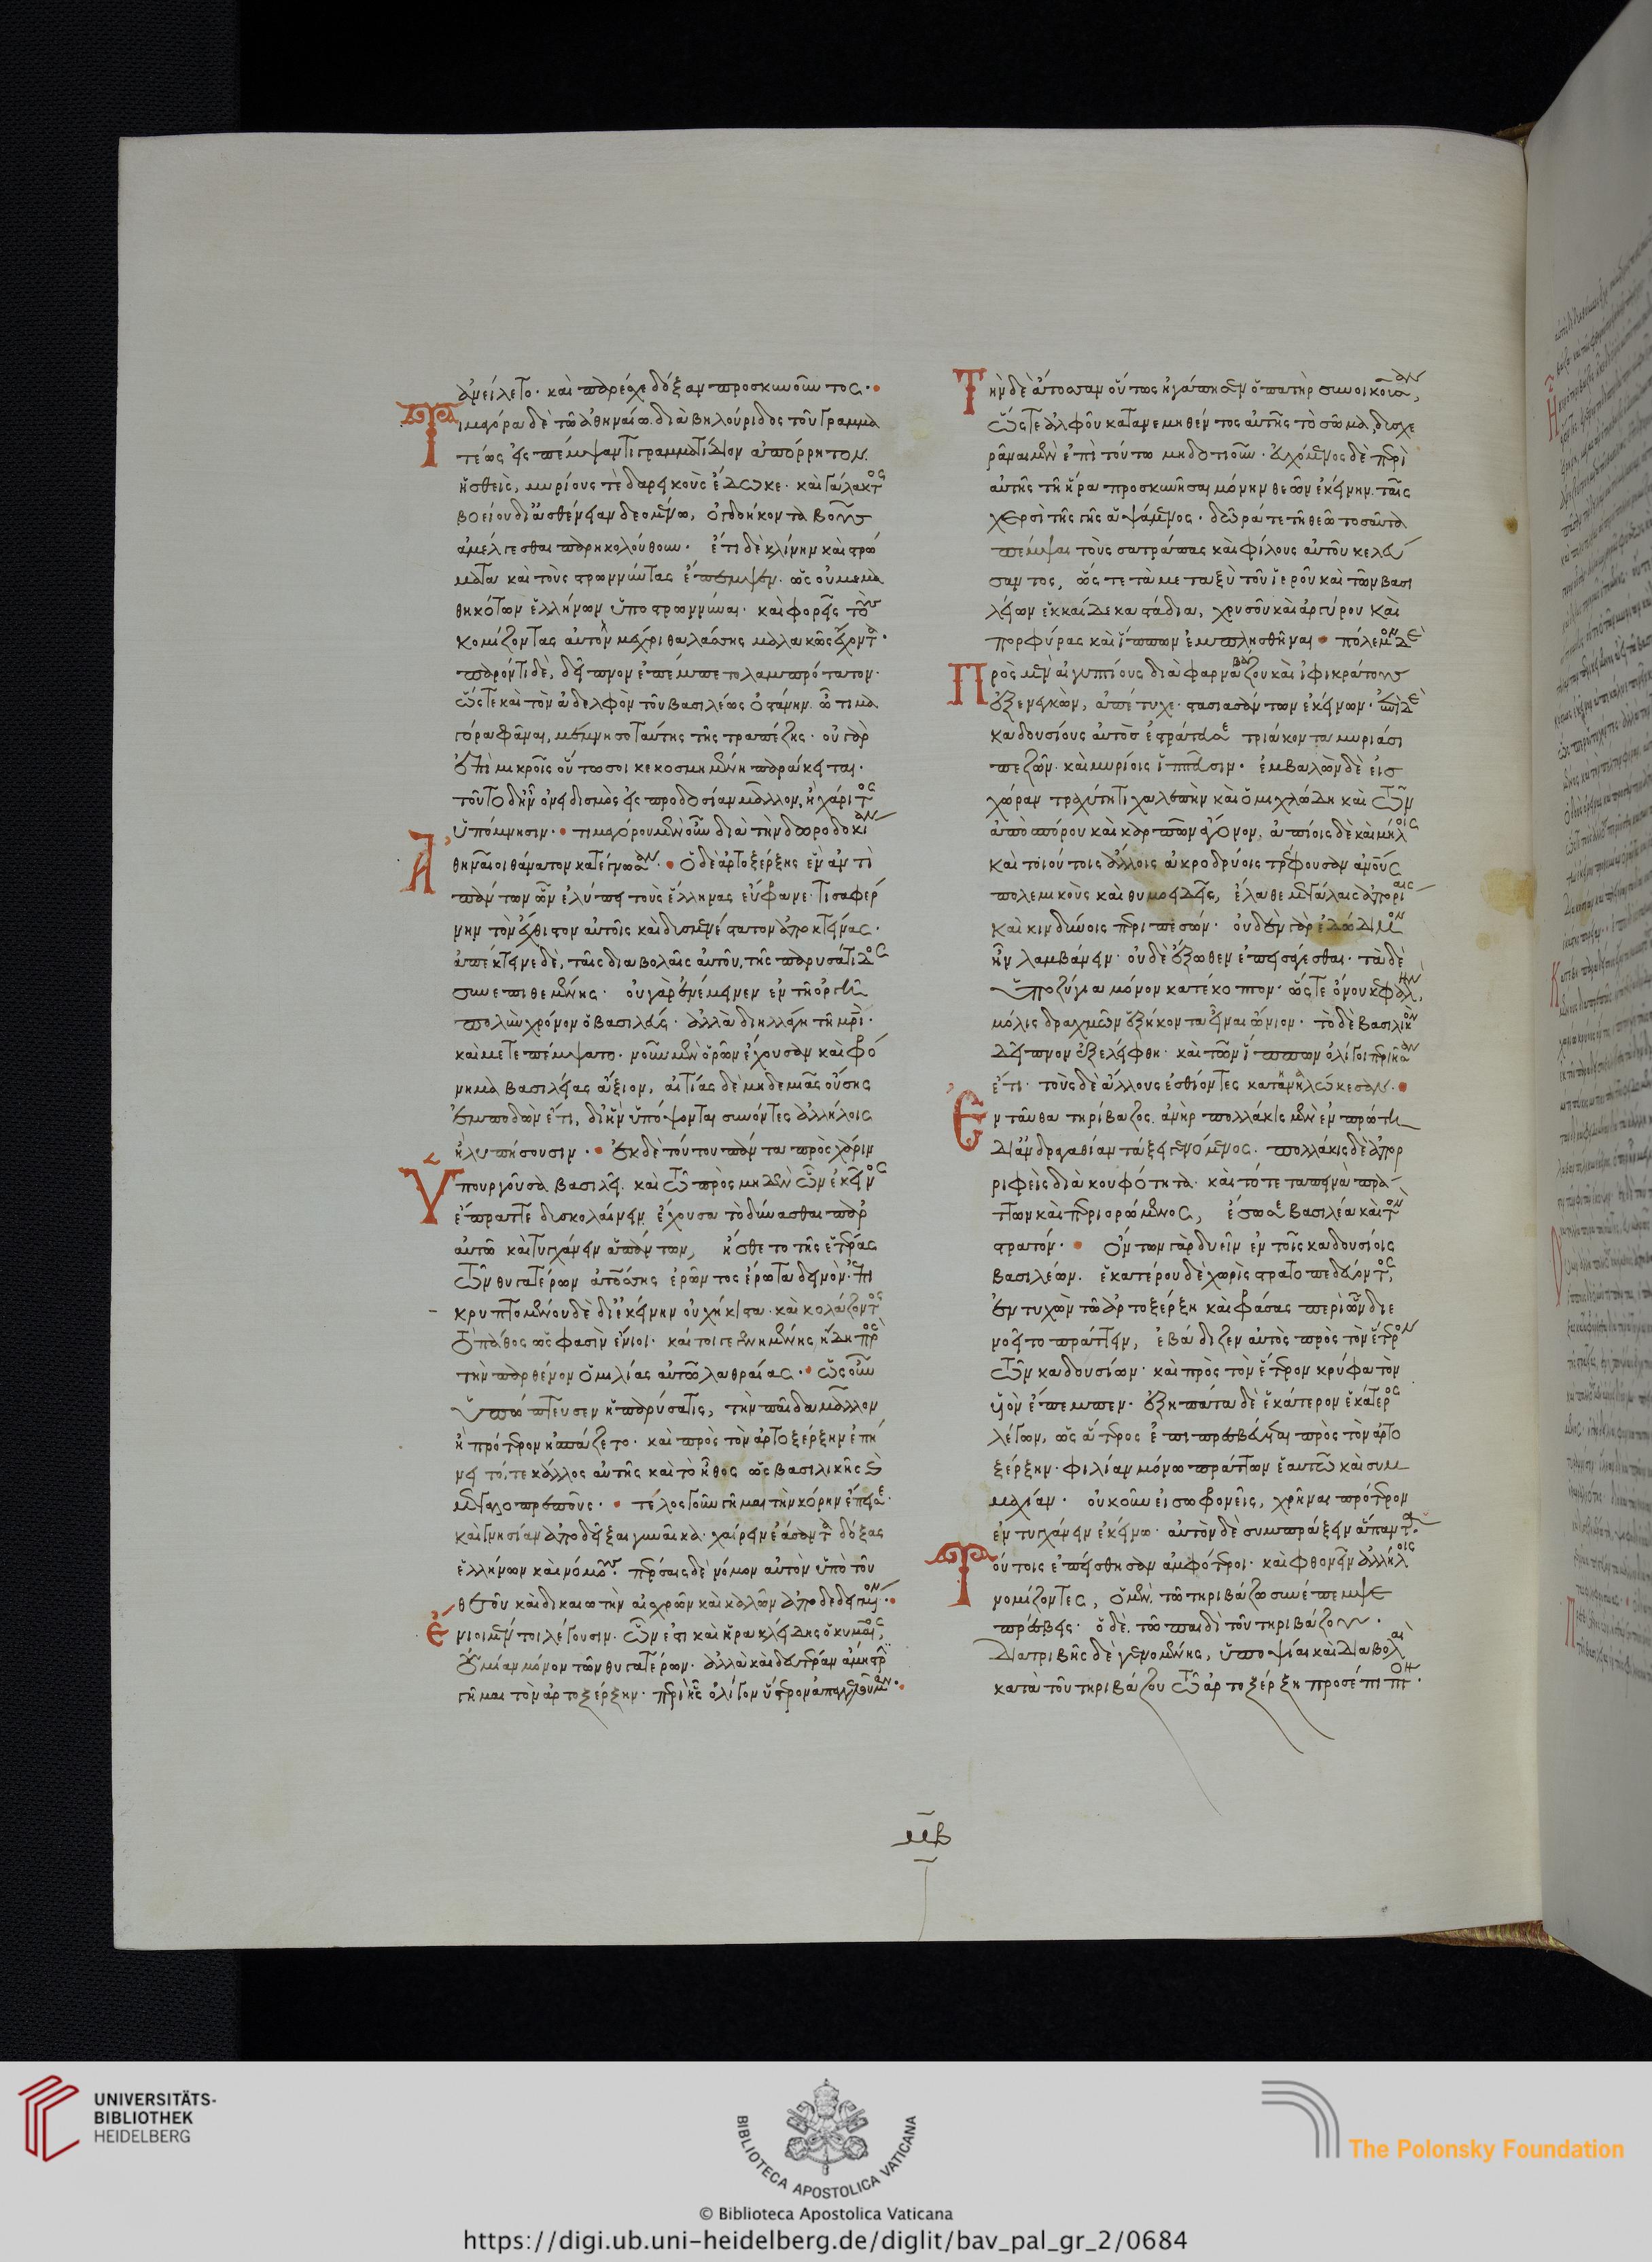 ἀνείλετο· καὶ παρέσχε δόξαν προσκυνοῦντος·
Τιμαγόρα δὲ τῶ ἀθηναίω διὰ βηλούριδος τοῦ γραμμα
τέως εἰσπέμψαντι γραμματίδιον ἀπόρρητον.
ἡσθεὶς, μυρίους τὲ δαρεικοὺς ἔδωκε· καὶ γάλακτος
βοείου δι' ἀσθένειαν δεομένω, ὀγδοήκοντα βοῦς
ἀμέλγεσθαι παρηκολούθουν· ἔτι δὲ κλίνην καὶ στρώ
ματα καὶ τοὺς στρωννύντας ἔπεμψεν· ὡς οὐ μεμα
θηκότων ἑλλήνων ὑποστρωννύναι· καὶ φορεῖς τοὺς
κομίζοντας αὐτὸν μέχρι θαλάσσης μαλακῶς ἔχοντα·
παρόντι δὲ, δεῖπνον ἔπεμπε τὸ λαμπρότατον·
ὥστε καὶ τὸν ἀδελφὸν τοῦ βασιλέως ὀστάνην. ὦ τιμα
γόρα φᾶναι, μέμνησο ταύτης τῆς τραπέζης· οὐ γὰρ
ἐπὶ μικροῖς οὕτω σοι κεκοσμημένη παράκειται·
τοῦτο δ' ἦν ὀνειδισμὸς εἰς προδοσίαν μᾶλλον, ἢ χάριτος
ὑπόμνησιν· τιμαγόρου μὲν οὖν διὰ τὴν δωροδοκίαν
Ἀθηναῖοι θάνατον κατέγνωσαν· ὁ δὲ ἀρτοξέρξης ἓν ἀντὶ
πάντων ὧν ἐλύπει τοὺς ἕλληνας εὔφρανε· τισαφέρ
νην τὸν ἔχθιστον αὐτοῖς καὶ δυσμενέστατον ἀποκτείνας·
ἀπέκτεινε δὲ, ταῖς διαβολαῖς αὐτοῦ, τῆς παρυσάτιδος
συνεπιθεμένης· οὐ γὰρ ἐνέμεινεν ἐν τῆ ὀργῆ
πολὺν χρόνον ὁ βασιλεύς· ἀλλὰ διηλλάγη τῆ μητρὶ·
καὶ μετεπέμψατο· νοῦν μὲν ὁρῶν ἔχουσαν καὶ φρό
νημα βασιλείας ἄξιον, αἰτίας δὲ μηδεμιᾶς οὔσης
ἐμποδὼν ἔτι, δι' ἣν ὑπόψονται συνόντες ἀλλήλοις
ἢ λυπήσουσιν· ἐκ δὲ τούτου πάντα πρὸς χάριν
ὑπουργοῦσα βασιλεῖ. καὶ τῶ πρὸς μηδὲν ὧν ἐκεῖνος
ἔπραττε δυσκολαίνειν ἔχουσα τὸ δύνασθαι παρ'
αὐτῶ καὶ τυγχάνειν ἁπάντων, ἤσθετο τῆς ἑτέρας
τῶν θυγατέρων ἀτόσσης ἐρῶντος ἔρωτα δεινὸν· ἐπι
κρυπτομένου δὲ δι' ἐκείνην οὐχ ἥκιστα· καὶ κολάζοντος
τὸ πάθος ὥς φασὶν ἔνιοι· καίτοι γεγενημένης ἤδη πρὸς
τὴν παρθένον ὁμιλίας αὐτῶ λαθραίας· ὡς οὖν
ὑπώπτευσεν ἡ παρύσατις, τὴν παῖδα μᾶλλον
ἢ πρότερον ἠσπάζετο· καὶ πρὸς τὸν ἀρτοξέρξην ἐπή
νει τό, τε κάλλος αὐτῆς καὶ τὸ ἦθος ὡς βασιλικῆς καὶ
μεγαλοπρεποῦς· τέλος γοῦν γῆμαι τὴν κόρην ἔπεισε·
καὶ γνησίαν ἀποδεῖξαι γυναῖκα· χαίρειν ἐάσαντα δόξας
ἑλλήνων καὶ νόμους· πέρσαις δὲ νόμον αὐτὸν ὑπὸ τοῦ
θεοῦ καὶ δικαιωτὴν αἰσχρῶν καὶ καλῶν ἀποδεδειγμένον·
ἔνιοι μέντοι λέγουσιν· ὧν ἐστι καὶ ἡρακλείδης ὁ κυμαῖος,
οὐ μίαν μόνον τῶν θυγατέρων· ἀλλὰ καὶ δευτέραν ἄμηστριν
γῆμαι τὸν ἀρτοξέρξην· περὶ ἧς ὀλίγον ὕστερον ἀπαγγελοῦμεν·
Τὴν δὲ ἄτοσσαν οὕτως ἠγάπησεν ὁ πατὴρ συνοικοῦσαν,
ὥστε ἀλφοῦ κατανεμηθέντος αὐτῆς τὸ σῶμα, δυσχε
ρᾶναι μὲν ἐπὶ τούτω μηδοτιοῦν· εὐχόμενος δὲ περὶ
αὐτῆς τῆ ἥρα προσκυνῆσαι μόνην θεῶν ἐκείνην. ταῖς
χερσὶ τῆς γῆς ἁψάμενος· δῶρά τε τῆ θεῶ τοσαῦτα
πέμψαι τοὺς σατράπας καὶ φίλους αὐτοῦ κελεύ
σαντος, ὥς τε τὰ μεταξὺ τοῦ ἱεροῦ καὶ τῶν βασι
λείων ἑκκαίδεκα στάδια, χρυσοῦ καὶ ἀργύρου καὶ
πορφύρας καὶ ἵππων ἐμπλησθῆναι· πόλεμον δὲ
Πρὸς μὲν αἰγυπτίους διὰ φαρναβάζου καὶ ἰφικράτους
ἐξενεγκὼν, ἀπέτυχε· στασιασάντων ἐκείνων· ἐπὶ δὲ
καδουσίους αὐτὸς ἐστράτευσε τριάκοντα μυριάσι
πεζῶν· καὶ μυρίοις ἱππεῦσιν· ἐμβαλὼν δὲ εἰς
χώραν τραχύτητι χαλεπὴν καὶ ὁμιχλώδη καὶ τῶν
ἀπὸ σπόρου καὶ καρπῶν ἄγονον, ἀπίοις δὲ καὶ μήλοις
καὶ τοιούτοις ἄλλοις ἀκροδρύοις τρέφουσαν ἀνοὺς
πολεμικοὺς καὶ θυμοειδεῖς, ἔλαθε μεγάλαις ἀπορίαις
καὶ κινδύνοις περιπεσών· οὐδὲν γὰρ ἐδώδιμον
ἦν λαμβάνειν· οὐδὲ ἔξωθεν ἐπεισάγεσθαι· τὰ δὲ
ὑποζύγια μόνον κατέκοπτον· ὥστε ὄνου κεφαλὴν,
μόλις δραχμῶν ἑξήκοντα εἶναι ὤνιον· τὸ δὲ βασιλικὸν
δεῖπνον ἐξελείφθη· καὶ τῶν ἵππων ὀλίγοι περιῆσαν
ἔτι· τοὺς δὲ ἄλλους ἐσθίοντες κατανηλώκεσαν·
Ἐνταῦθα τηρίβαζος. ἀνὴρ πολλάκις μὲν ἐν πρώτη
δι' ἀνδραγαθίαν τάξει γενόμενος· πολλάκις δὲ ἀπορ
ριφεὶς διὰ κουφότητα· καὶ τότε ταπεινὰ πρά
ττων καὶ περιορώμενος, ἔσωσε βασιλέα καὶ τὸν
στρατόν· ὄντων γὰρ δυεῖν ἐν τοῖς καδουσίοις
βασιλέων. ἑκατέρου δὲ χωρὶς στρατοπεδεύοντος,
ἐντυχὼν τῶ ἀρτοξέρξη καὶ φράσας περὶ ὧν διε
νοεῖτο πράττειν, ἐβάδιζεν αὐτὸς πρὸς τὸν ἕτερον
τῶν καδουσίων· καὶ πρὸς τὸν ἕτερον κρύφα τὸν
υἱὸν ἔπεμπεν· ἐξηπάτα δὲ ἑκάτερον ἑκάτερος
λέγων, ὡς ἅτερος ἐπιπρεσβεύεται πρὸς τὸν ἀρτο
ξέρξην· φιλίαν μόνω πράττων ἑαυτῶ καὶ συμ
μαχίαν· οὐκοῦν εἰ σωφρονεῖς, χρῆναι πρότερον
ἐντυγχάνειν ἐκείνω· αὐτὸν δὲ συμπράξειν ἅπαντα·
Τούτοις ἐπείσθησαν ἀμφότεροι· καὶ φθονεῖν ἀλλήλοις
νομίζοντες, ὁ μὲν. τῶ τηριβάζω συνέπεμψε
πρέσβεις· ὁ δὲ. τῶ παιδὶ τοῦ τηριβάζου·
διατριβῆς δὲ γενομένης, ὑποψίαι καὶ διαβολαὶ
κατὰ τοῦ τηριβάζου τῶ ἀρτοξέρξη προσέπιπτον·
UNIVERSITÄTS-
BIBLIOTHEK
HEIDELBERG
BIBLIOTECA APOSTOLICA VATICANA
© Biblioteca Apostolica Vaticana
The Polonsky Foundation
https://digi.ub.uni-heidelberg.de/diglit/bav_pal_gr_2/0684